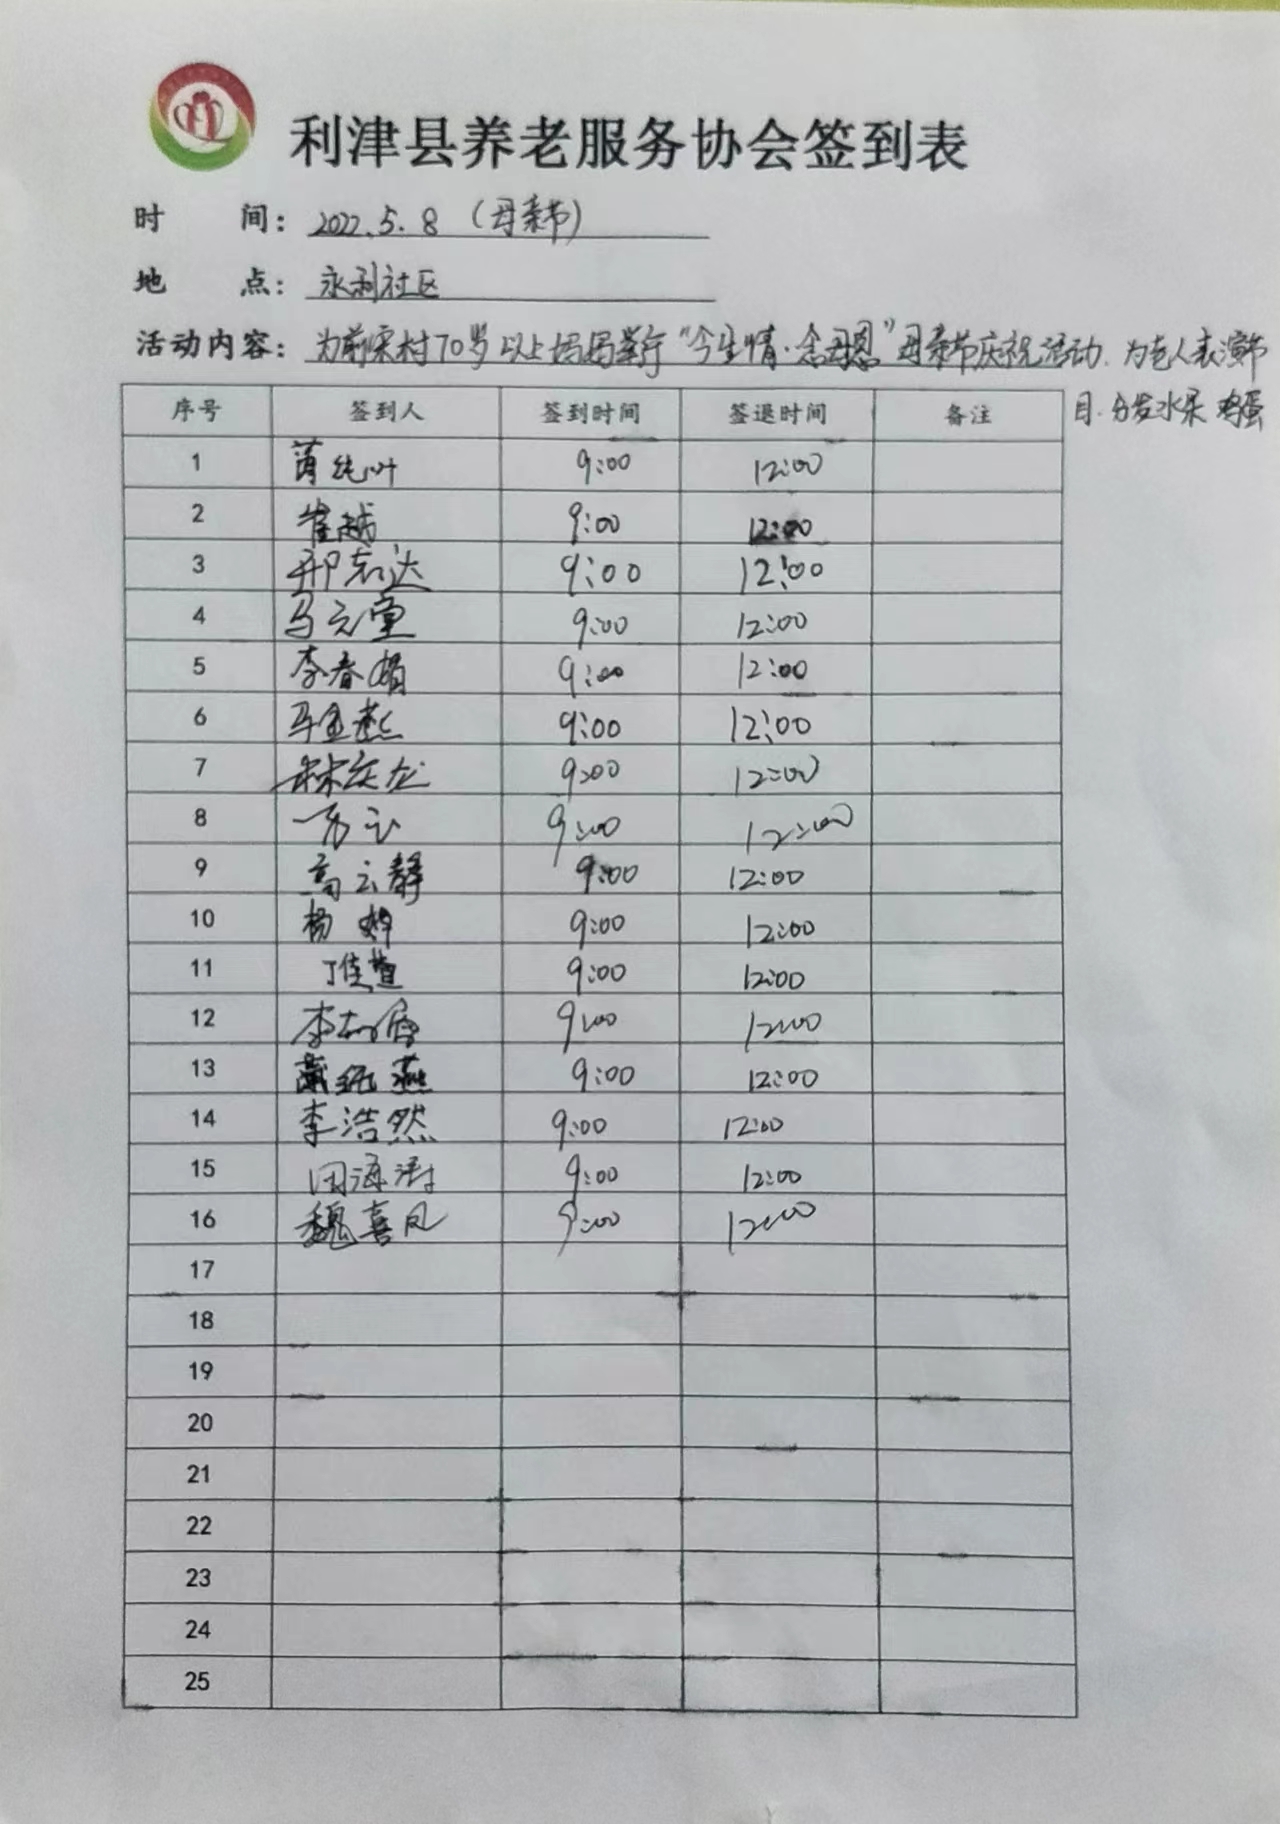 利津县养老服务协会签到表
时 间：2022.5.8（母亲节）
地 点：永利社区
活动内容：为前宋村70岁以上妈妈举行“今生情·念母恩”母亲节庆祝活动.为老人表演节
目.分发水果 鸡蛋
序号 签到人 签到时间 签退时间 备注
1 9:00 12:00
2 崔越 9:00 12:00
3 9:00 12:00
4 马元堂 9:00 12:00
5 李春娟 9:00 12:00
6 9:00 12:00
7 9:00 12:00
8 9:00 12:00
9 高云静 9:00 12:00
10 杨 9:00 12:00
11 丁佳萱 9:00 12:00
12 9:00 12:00
13 9:00 12:00
14 李浩然 9:00 12:00
15 田海涛 9:00 12:00
16 魏喜凤 9:00 12:00
17
18
19
20
21
22
23
24
25